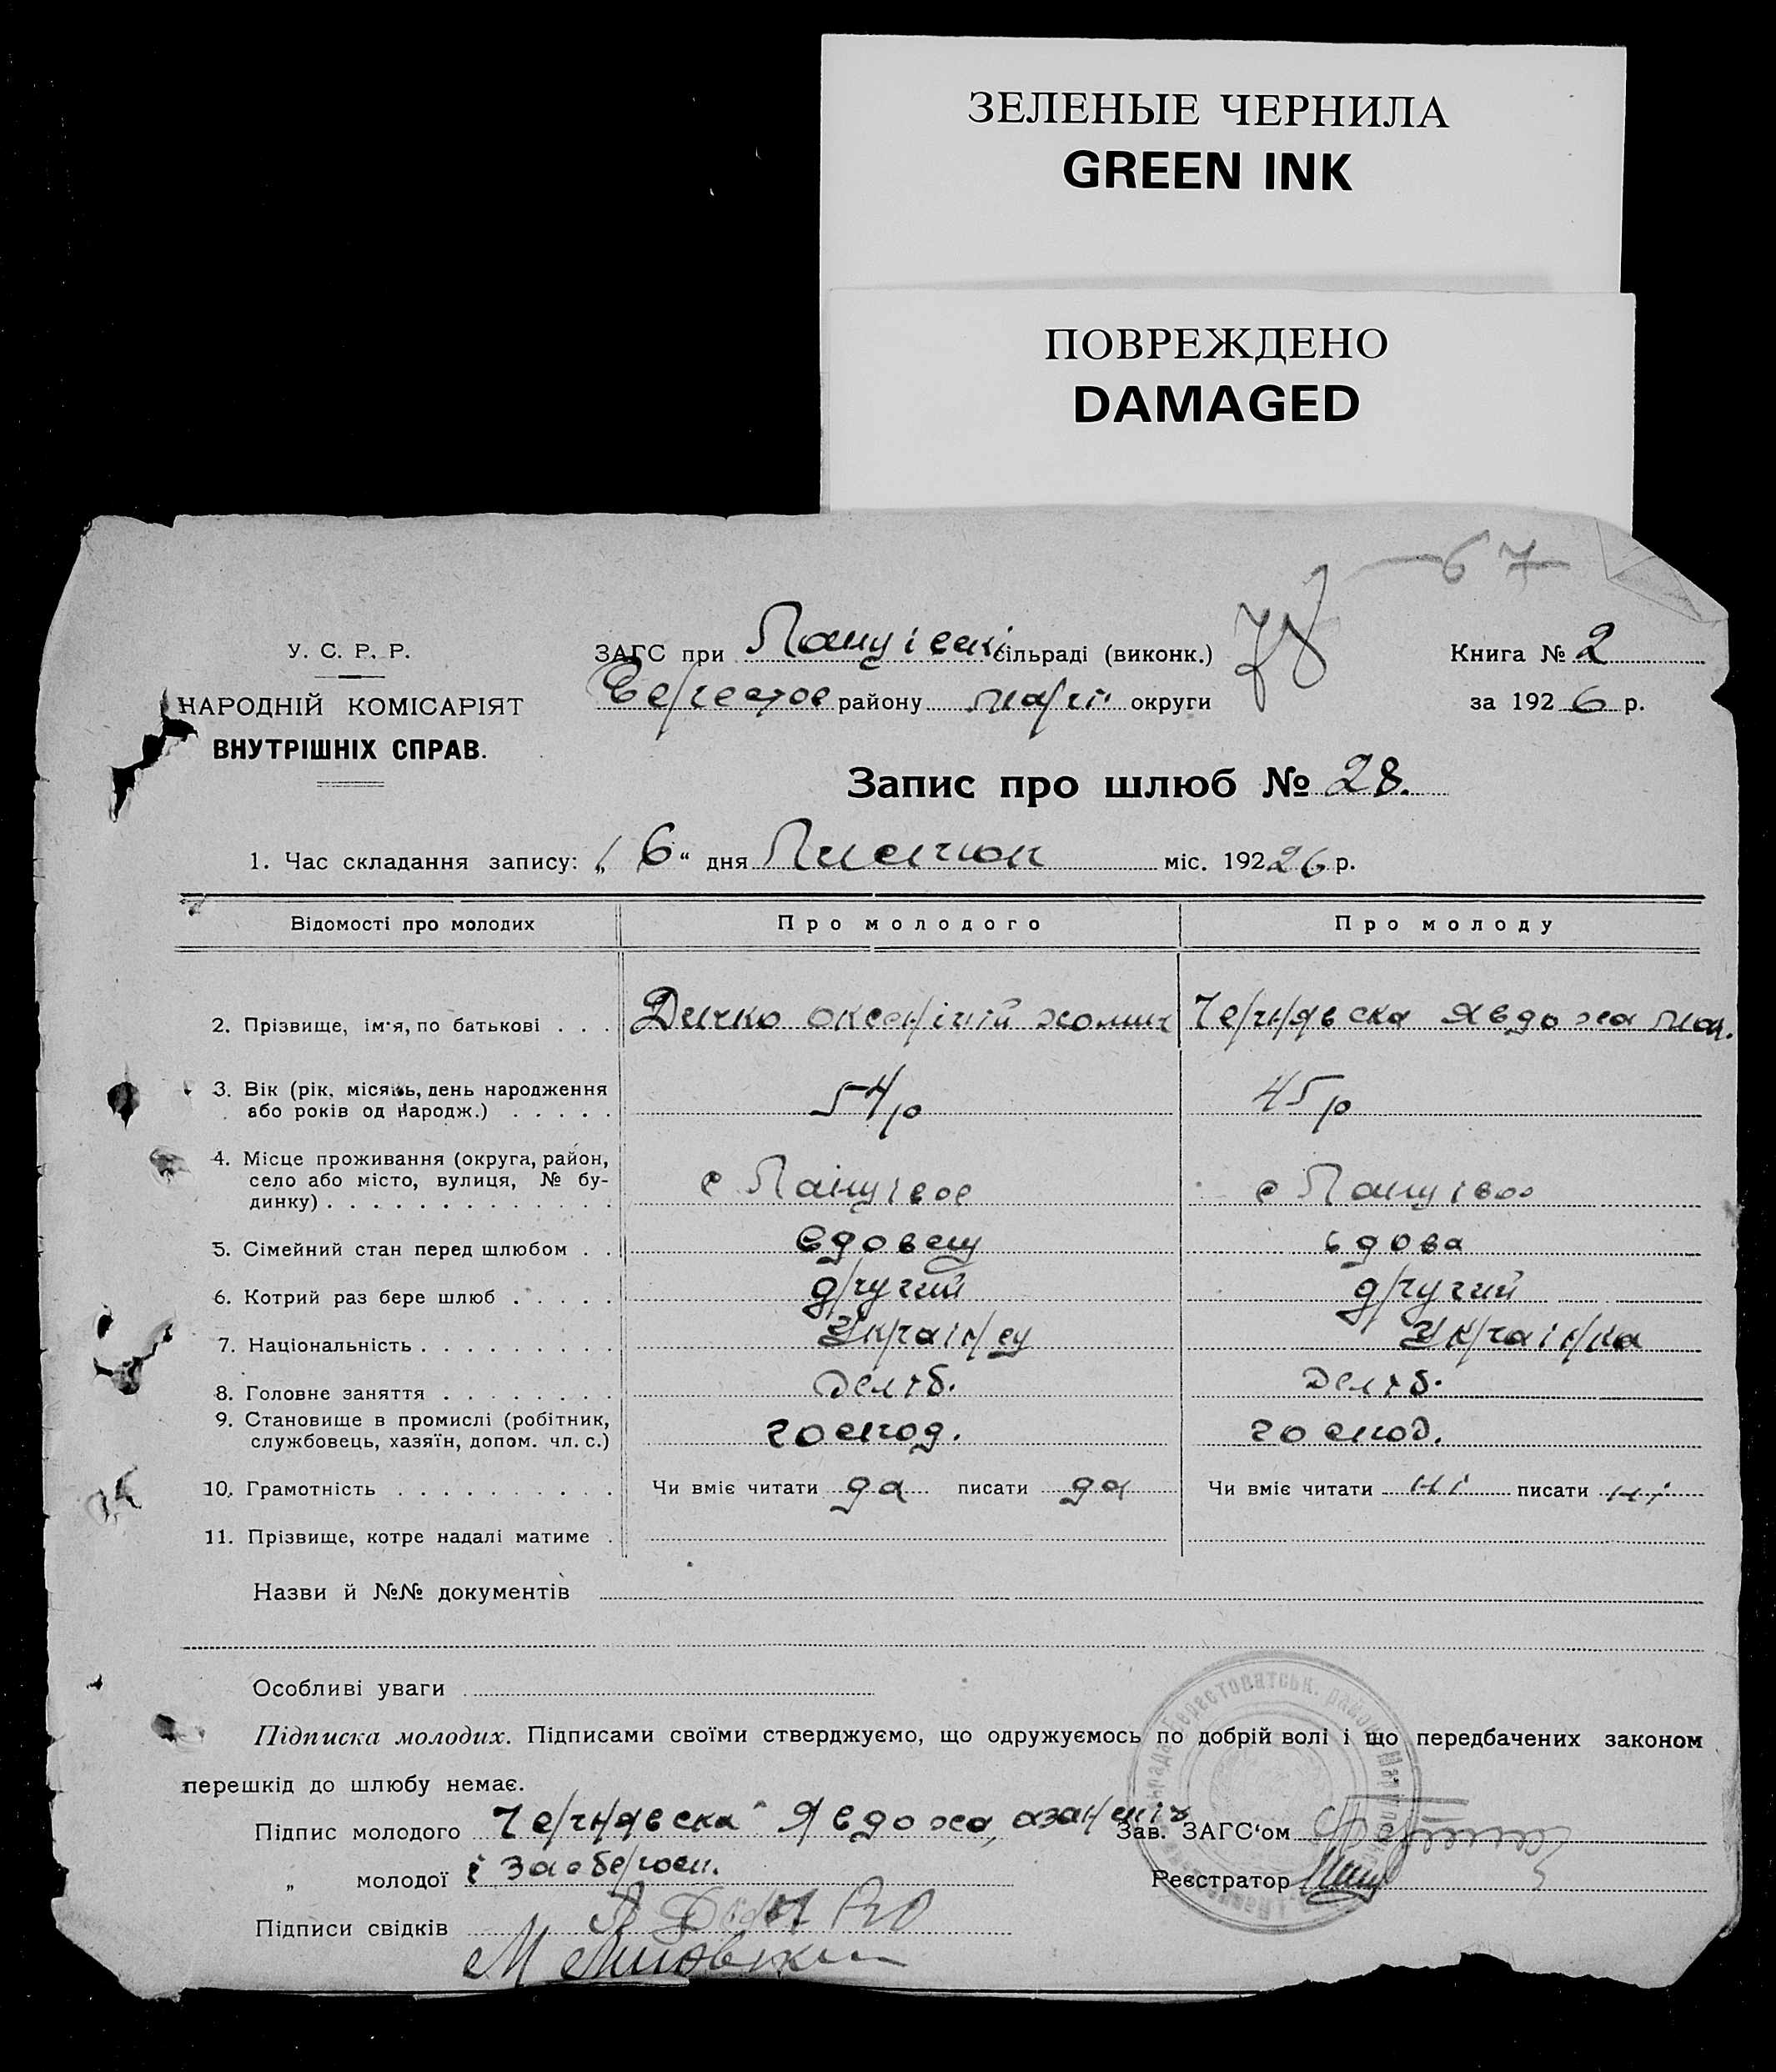 ЗЕЛЕНЫЕ ЧЕРНИЛА
GREEN INK
ПОВРЕЖДЕНО
DAMAGED
67
78
У. С. Р. Р.
НАРОДНІЙ КОМІСАРІЯТ
ВНУТРІШНІХ СПРАВ.
ЗАГС при сільраді (виконк.)
району округи
Книга № 2
за 1926 р.
Запис про шлюб № 28.
1. Час складання запису: „ 6 “ дня міс. 19226 р.
Відомості про молодих Про молодого Про молоду
2. Прізвище, ім'я, по батькові . . . Дичко Явдоха
3. Вік (рік, місяць, день народження
або років од народж.) . . . . . 54 р 45 р
4. Місце проживання (округа, район,
село або місто, вулиця, № бу-
динку) . . . . . . . . . . . . . с с
5. Сімейний стан перед шлюбом . . вдовец вдова
6. Котрий раз бере шлюб . . . . . другий другий
7. Національність . . . . . . . . . Українец Українка
8. Головне заняття . . . . . . . .
9. Становище в промислі (робітник,
службовець, хазяїн, допом. чл. с.) господ. господ.
10. Грамотність . . . . . . . . . . Чи вміє читати да писати да Чи вміє читати ні писати ні
11. Прізвище, котре надалі матиме .
Назви й №№ документів
Особливі уваги
Підписка молодих. Підписами своїми стверджуємо, що одружуємось по добрій волі і що передбачених законом
перешкід до шлюбу немає.
Підпис молодого Явдоха Зав. ЗАГС'ом
„ молодої Реєстратор
Підписи свідків